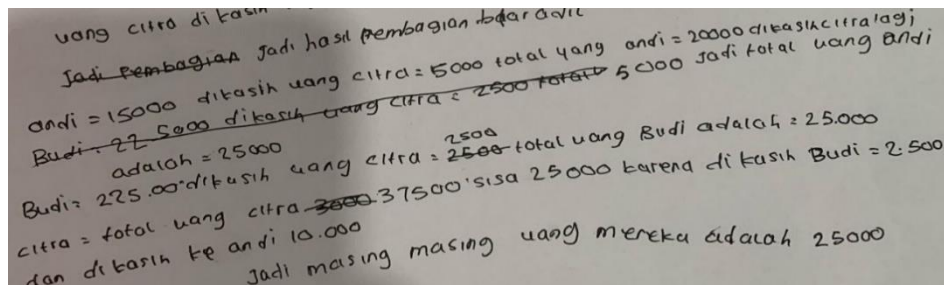 uang citra dikasih
Jadi Pembagian Jadi hasil pembagian adil
andi = 15000 dikasih uang citra = 5000 total yang andi = 20000 dikasih citra lagi
Budi = 22 5000 dikasih uang citra = 2500 total 5000 Jadi total uang andi
adalah = 25000
2500
Budi = 225.00 dikasih uang citra = 2500 total uang Budi adalah = 25.000
citra = total uang citra 3000 37500 sisa 25000 karena di kasih Budi = 2.500
dan dikasih ke andi 10.000
Jadi masing masing uang mereka adalah 25000